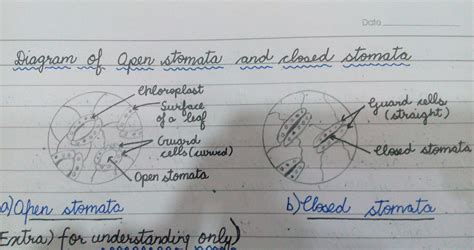 Date
Diagram of Open stomata and closed stomata
Chloroplast
Surface
of a leaf
Guard
cells (curved)
Open stomata
Guard cells
(straight)
Closed stomata
a) Open stomata
b) Closed stomata
Extra) for understanding only)